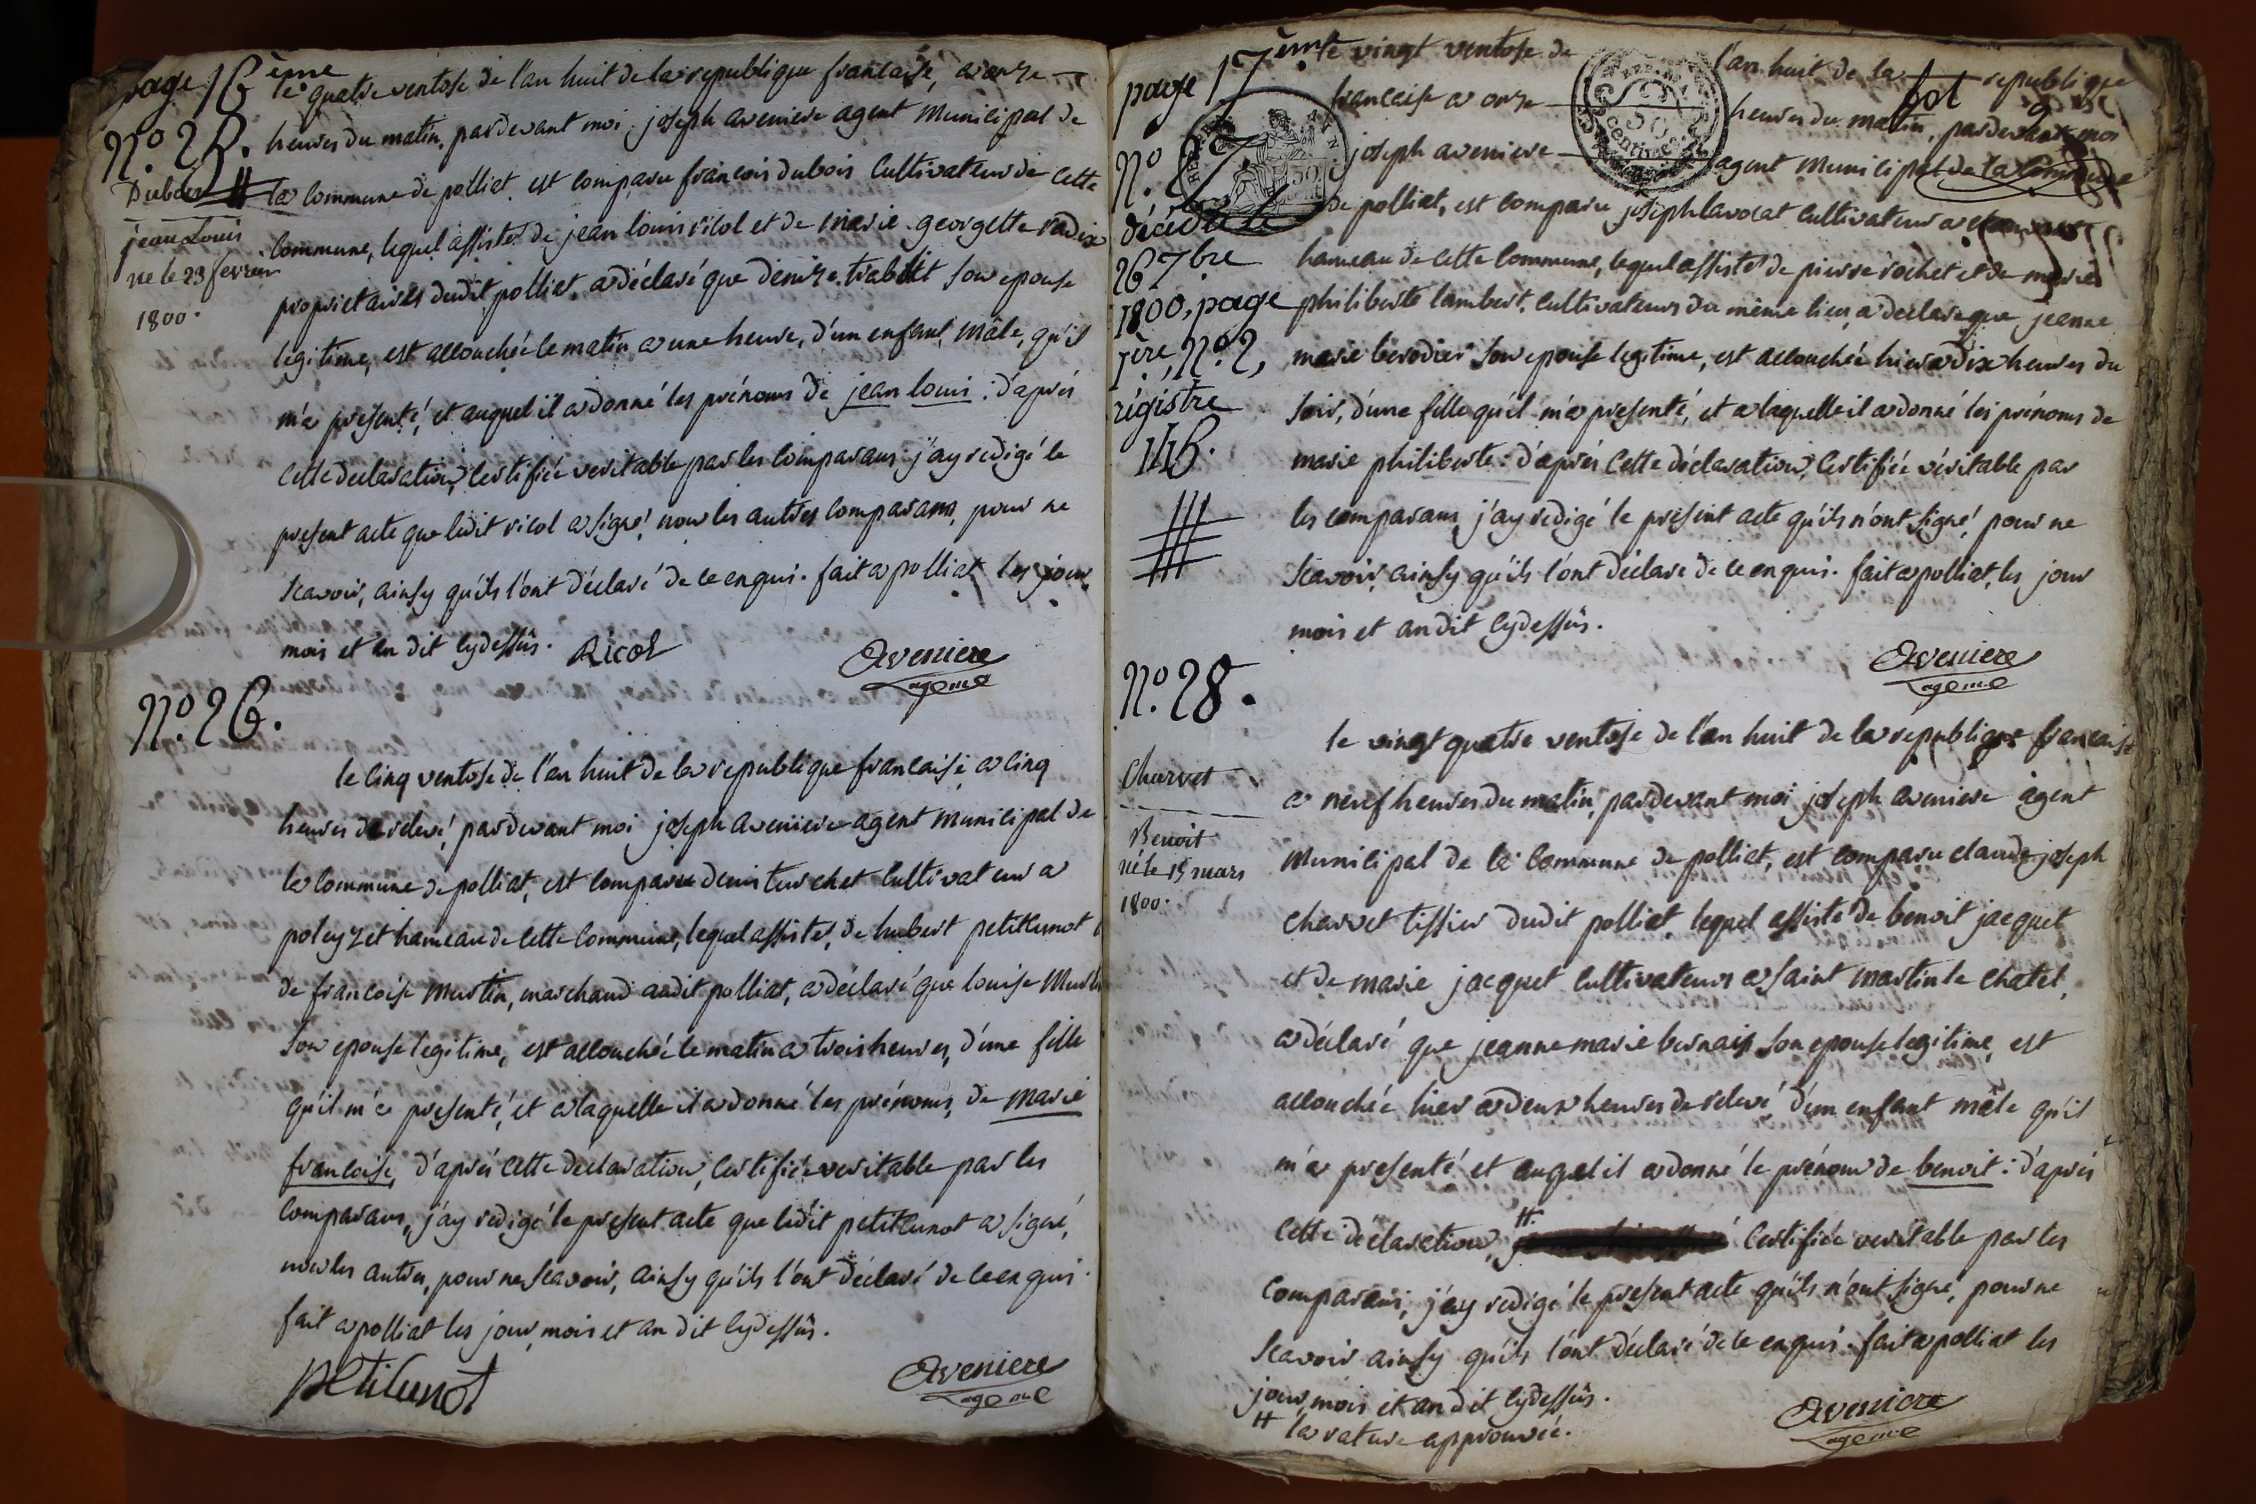 page 16ème
le quatre ventose de l'an huit de la republique francaise, a onze
N.o 25. heures du matin, pardevant moi joseph aveniere agent Municipal de
Dubois la commune de polliat est comparu francois dubois Cultivateur de cette
jean Louis commune, lequel assisté de jean louis ricol et de marie georgette radix
né le 23 fevrier proprietaires dudit polliat, a déclaré que denize trablit son epouse
1800. legitime, est accouchée le matin a une heure, d'un enfant mâle, qu'il
m'a presenté, et auquel il a donné les prénoms de jean louis : d'aprés
cette declaration, certifiée veritable par les comparans j'ay redigé le
present acte que ledit ricol a signé, non les autres comparans, pour ne
scavoir, ainsy qu'ils l'ont déclaré de ce enquis. fait a polliat les jour
mois et an dit cydessûs. Ricol Aveniere
agent
N.o 26.
le cinq ventose de l'an huit de la republique francaise, a cinq
heures de relevé, pardevant moi joseph aveniere agent Municipal de
la commune de polliat, est comparu denis turchet cultivateur a
poleyzet hameau de cette commune, lequel assisté, de hubert petitcunot
de francoise Martin, marchand audit polliat, a déclaré que louise
son epouse legitime, est accouchée le matin a trois heures, d'une fille
qu'il m'a presenté, et a laquelle il a donné les prénoms, de marie
francoise, d'aprés cette declaration, certifiée veritable par les
comparans, j'ay redigé le present acte que ledit petitcunot a signé,
non les autres, pour ne scavoir, ainsy qu'ils l'ont déclaré de ce enquis.
fait a polliat les jour mois et an dit cydessûs.
petitcunot Aveniere
agent
page 17ème le vingt ventose de l'an huit de la republique
francaise a onze heures du matin, pardevant moi
N.o 27 joseph aveniere agent Municipal de la commune
décédée le de polliat, est comparu joseph lavocat cultivateur a
26 7bre hameau de cette commune, lequel assisté de pierre rochet et de marie
1800, page philiberte lambert, cultivateurs du même lieu, a declaré que jeanne
1ère, N.o 2, marie berodier son epouse legitime, est accouchée hier a dix heures du
régistre soir, d'une fille qu'il m'a presenté, et a laquelle il a donné les prénoms de
marie philiberte : d'aprés cette déclaration, certifiée véritable par
les comparans, j'ay redigé le present acte qu'ils n'ont signé, pour ne
scavoir, ainsy qu'ils l'ont déclaré de ce enquis. fait a polliat, les jour
mois et an dit cydessûs.
Aveniere
agent
N.o 28.
le vingt quatre ventose de l'an huit de la republique francaise
Charvet a neuf heures du matin, pardevant moi joseph aveniere agent
Benoit Municipal de la commune de polliat, est comparu claude joseph
né le 15 mars charvet tissier dudit polliat, lequel assisté de benoit jacquet
1800. et de marie jacquet cultivateurs a saint martin le chatel,
a déclaré que jeanne marie bernain son epouse legitime, est
accouchée hier a deux heures de relevé, d'un enfant mâle qu'il
m'a presenté, et auquel il a donné le prénom de benoit : d'aprés
cette déclaration, # certifiée veritable par les
comparans, j'ay redigé le present acte qu'ils n'ont signé, pour ne
scavoir ainsy qu'ils l'ont déclaré de ce enquis. fait a polliat les
jour, mois et an dit cydessûs.
# la rature approuvée. Aveniere
agent